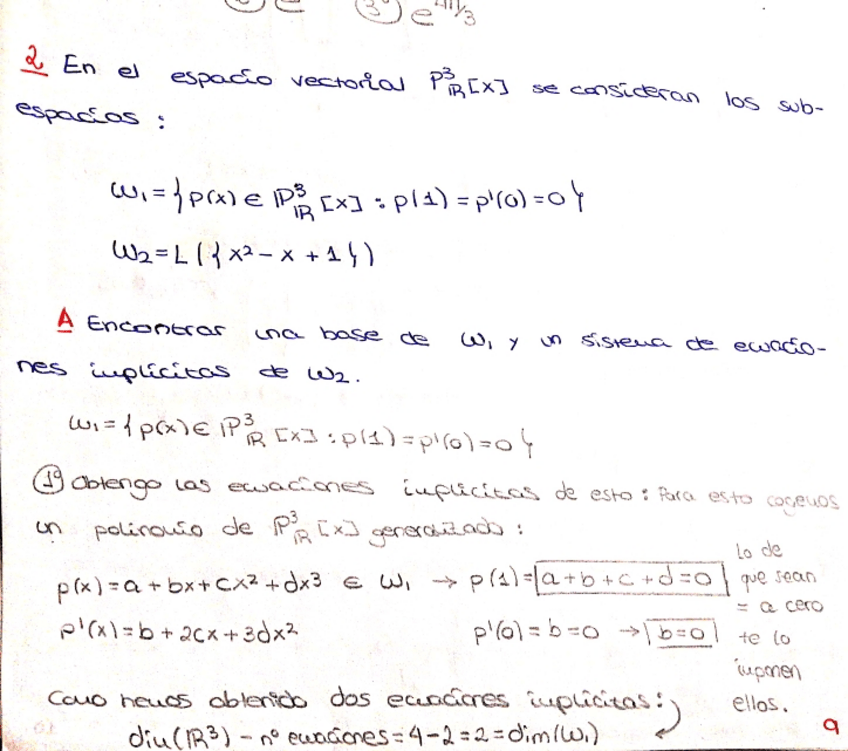 3º) e^4π/3
2 En el espacio vectorial P³ℝ[x] se consideran los sub-
espacios :
W₁ = { p(x) ∈ ℙ³ℝ [x] : p(1) = p'(0) = 0 }
W₂ = L ( { x² - x + 1 } )
A Encontrar una base de W₁ y un sistema de ecuacio-
nes implícitas de W₂.
W₁ = { p(x) ∈ ℙ³ℝ [x] : p(1) = p'(0) = 0 }
1º Obtengo las ecuaciones implícitas de esto : Para esto cogemos
un polinomio de ℙ³ℝ [x] generalizado :
p(x) = a + bx + cx² + dx³ ∈ W₁ → p(1) = a + b + c + d = 0
p'(x) = b + 2cx + 3dx² p'(0) = b = 0 → b = 0
lo de
que sean
= a cero
te lo
imponen
ellos.
Como hemos obtenido dos ecuaciones implícitas :
dim(ℝ³) - nº ecuaciones = 4 - 2 = 2 = dim(W₁)
9